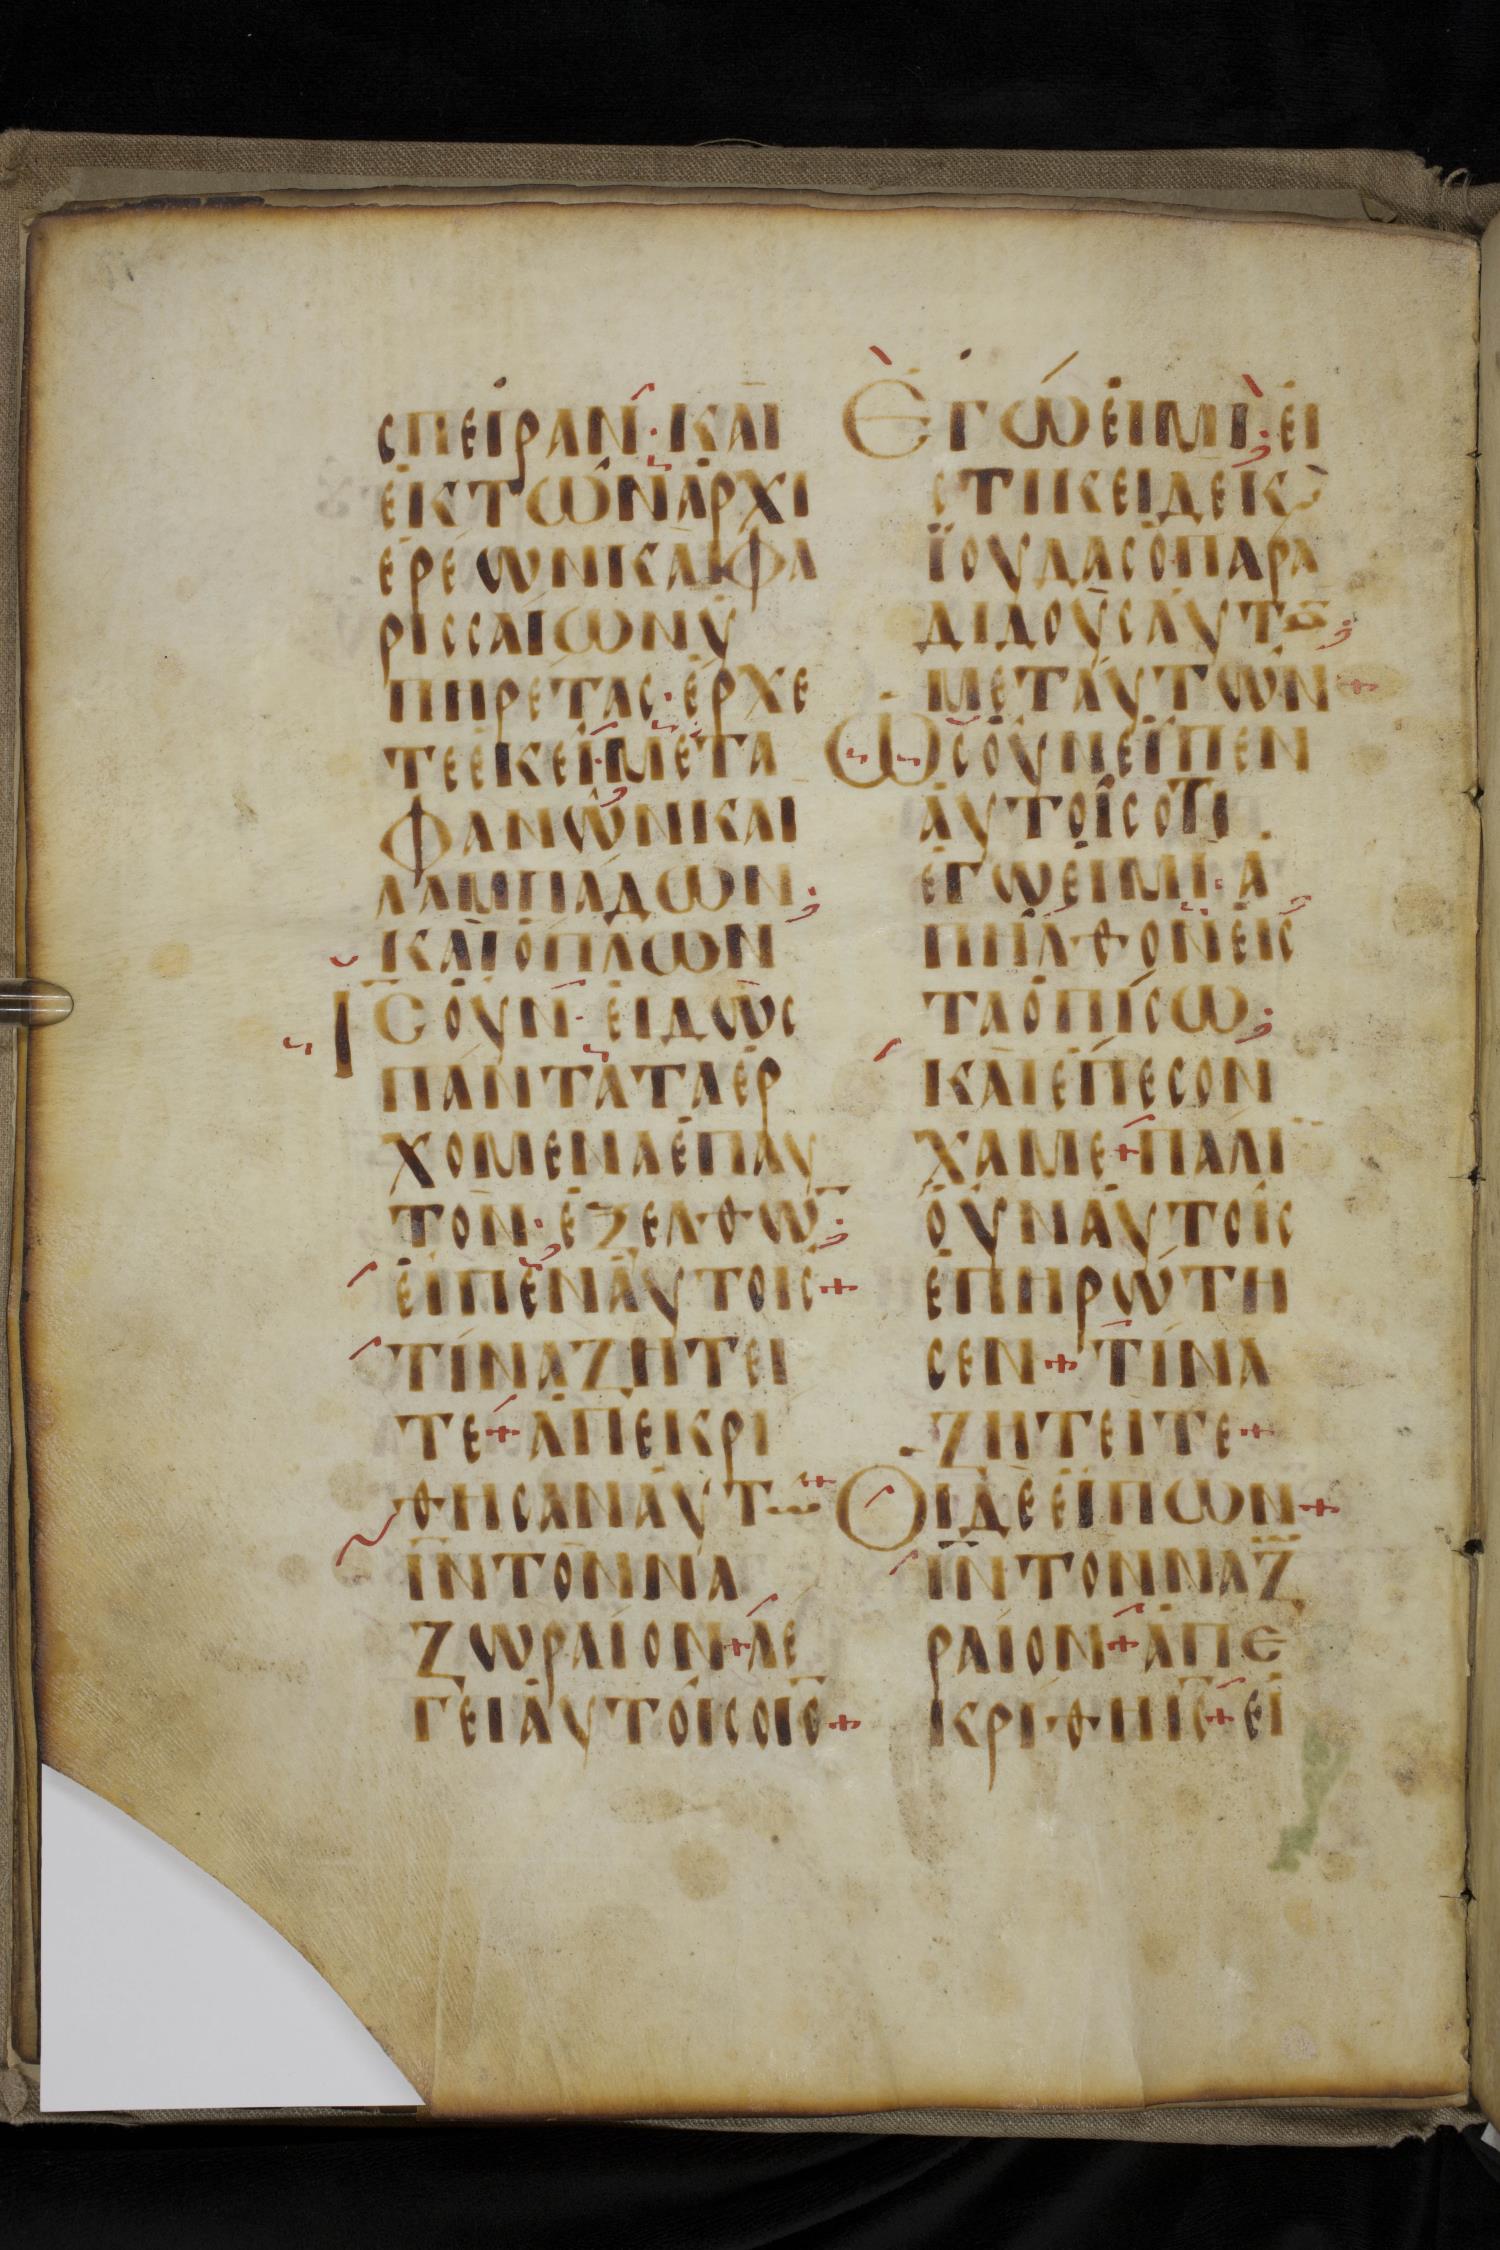 σπείραν· και
ἐκτῶν ἀρχι
ερέων καὶ φα
ρισσαίων ὑ
πηρέτας· ἔρχε
τε ἐκεῖ· μετα
φανῶν και
λαμπάδων·
καὶ ὅπλων
Ις̅ οὖν· εἰδὼς
πάντα τα ἐρ
χομενα ἐπ αυ
τον· ἐξελθω̅·
εἶπεν ἀυτοις+
τίνα ζητει
τε+ ἀπεκρι
θησαν ἀυτω
ι̅ν̅ τὸν να
ζωραίον+ λέ
γει ἀυτοῖς ο ι̅ς̅+
Ἐγώ εἰμι· εἱ
στικει δὲ κ̀
ϊουδας ὁ παρα
διδοὺς ἀυτὸ
μετ ἀυτῶν+
Ὡς οὖν εἶπεν
ἀυτοῖς οτι
ἐγω εἰμι· ἀ
πῆλθον εἰς
τα ὀπίσω·
και ἔπεσον
χαμε+ πάλι
οὖν ἀυτοῖς
ἐπηρώτη
σεν+ τίνα
ζητειτε+
Οι δὲ εἶπων+
ι̅ν̅ τον ναζ
ραίον+ ἀπε
κρίθη ι̅ς̅+ εἶ